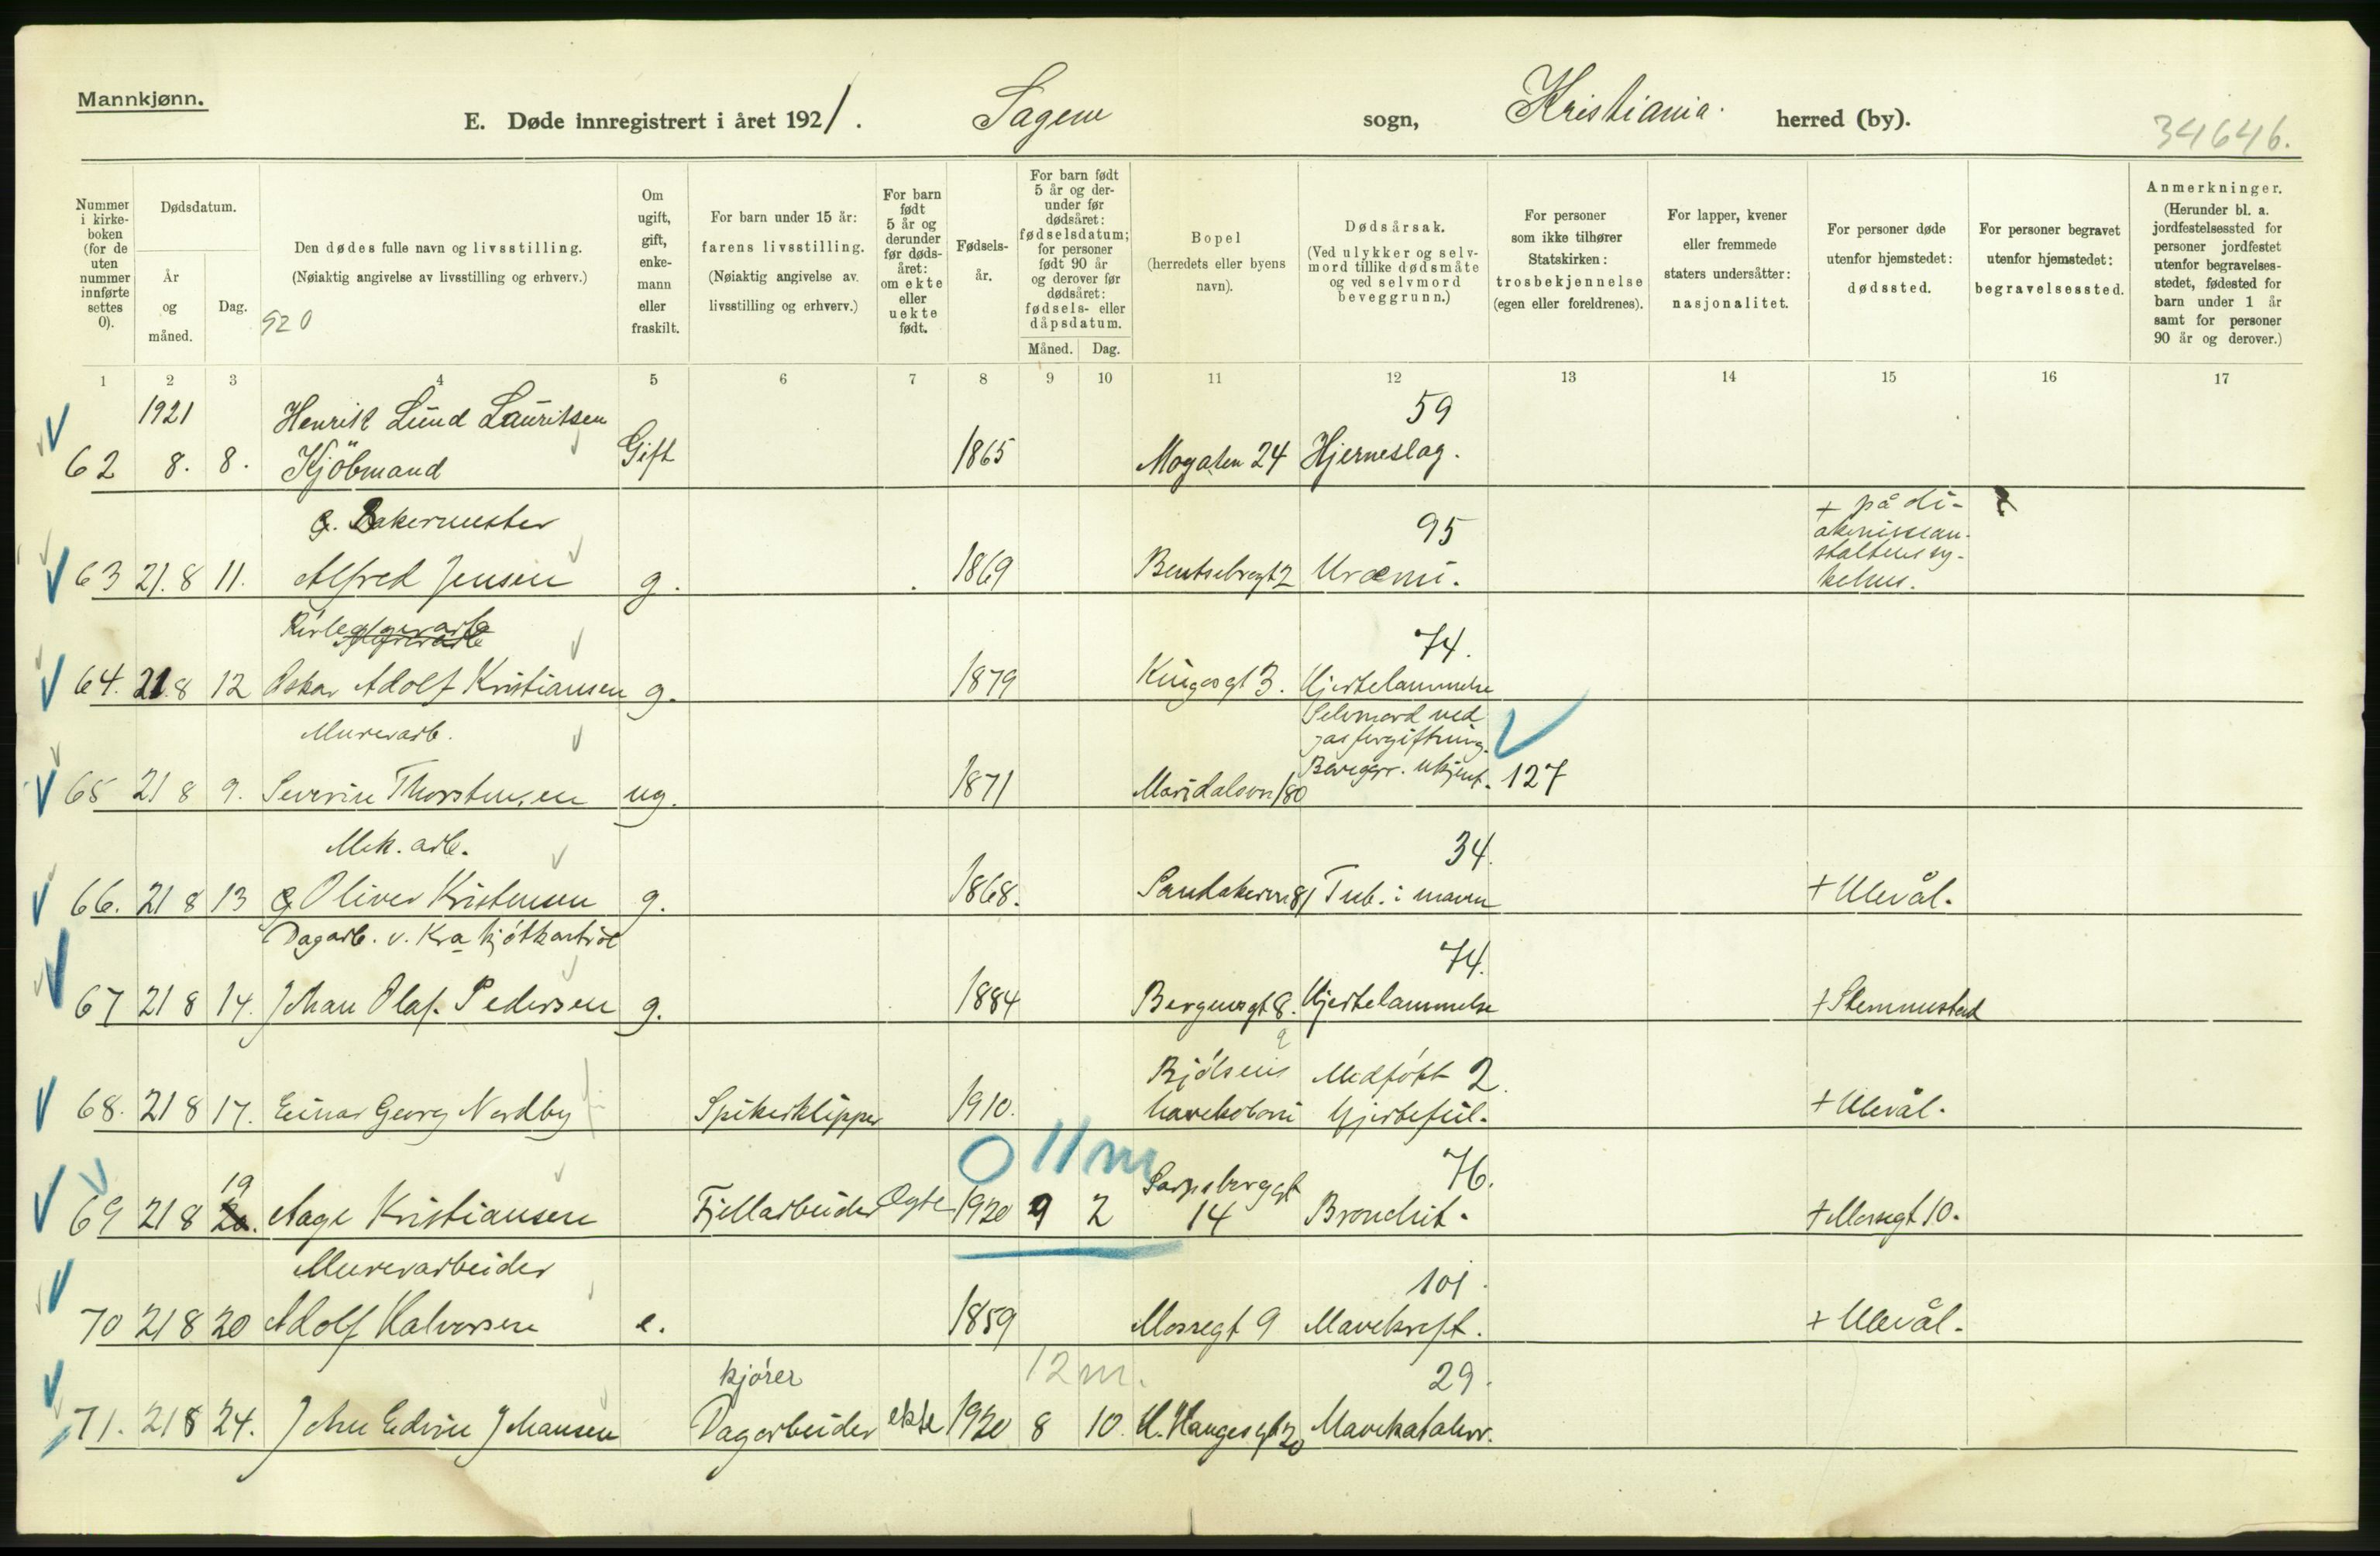 Mannkjønn.
E. Døde innregistrert i året 1921. Sagene sogn, Kristiania. herred (by).
34646.
Nummer i kirke-boken (for de uten nummer innførte settes 0).
Dødsdatum.
År og måned.
Dag.
Den dødes fulle navn og livsstilling.
(Nøiaktig angivelse av livsstilling og erhverv.)
920
Om ugift, gift, enke-mann eller fraskilt.
For barn under 15 år:
farens livsstilling.
(Nøiaktig angivelse av livsstilling og erhverv.)
For barn født 5 år og derunder før døds-året: om ekte eller uekte født.
Fødsels-år.
For barn født 5 år og der-under før dødsåret: fødselsdatum; for personer født 90 år og derover før dødsåret: fødsels- eller dåpsdatum.
Måned. Dag.
Bopel
(herredets eller byens navn).
Dødsårsak.
(Ved ulykker og selv-mord tillike dødsmåte og ved selvmord beveggrunn.)
For personer som ikke tilhører Statskirken:
trosbekjennelse
(egen eller foreldrenes).
For lapper, kvener eller fremmede staters undersåtter:
nasjonalitet.
For personer døde utenfor hjemstedet:
dødssted.
For personer begravet utenfor hjemstedet:
begravelsessted.
Anmerkninger.
(Herunder bl. a. jordfestelsessted for personer jordfestet utenfor begravelses-stedet, fødested for barn under 1 år samt for personer 90 år og derover.)
1 2 3 4 5 6 7 8 9 10 11 12 13 14 15 16 17
1921 Henrik Lund Lauritsen 59
62 8. 8. Kjöbmand Gift 1865 Mogaten 24 Hjerneslag.
g. Bakermester 95 + på di-
akonissean-
staltens sy-
63 21.8 11. Alfred Jensen g. 1869 Bentsebrogt 2 Uræmi. kehus.
Rörleggerarb 74.
64. 21.8 12 Oskar Adolf Kristiansen g. 1879 Kingosgt 3. Hjertelammelse
Murerarb. Selvmord ved
gasforgiftning.
65 21 8 9. Severin Thorstensen ug. 1871 Maridalsvn 180 Beveggr. ukjent. 127
Mek. arb. 34.
66. 21 8 13 Oliver Kristensen g. 1868. Sandakervn 81 Tub. i maven + Ulevål.
Dagarb. v. Kra kjøtkontrol 74.
67 21 8 14. Johan Olaf Pedersen g. 1884 Bergensgt 8. Hjertelammelse + Slemmestad
Bjølsens Medfött 2
68. 21 8 17. Einar Georg Nordby Spikerklipper 1910. havekoloni hjertefeil. + Ulevål.
0 11 m
19 Sarpsborggt 76.
69 21 8 20. Aage Kristiansen Fjellarbeider Ægte 1920 9 2 14 Bronchit. + Mossegt 10.
Murerarbeider 101.
70 21 8 20 Adolf Halvorsen e. 1859 Mossegt 9 Mavekreft. + Ulevål.
kjører 12 m. 29.
71. 21 8 24. John Edvin Johansen Dagarbeider ekte 1920 8 10. H. Haugesgt 20 Mavekatahrr.